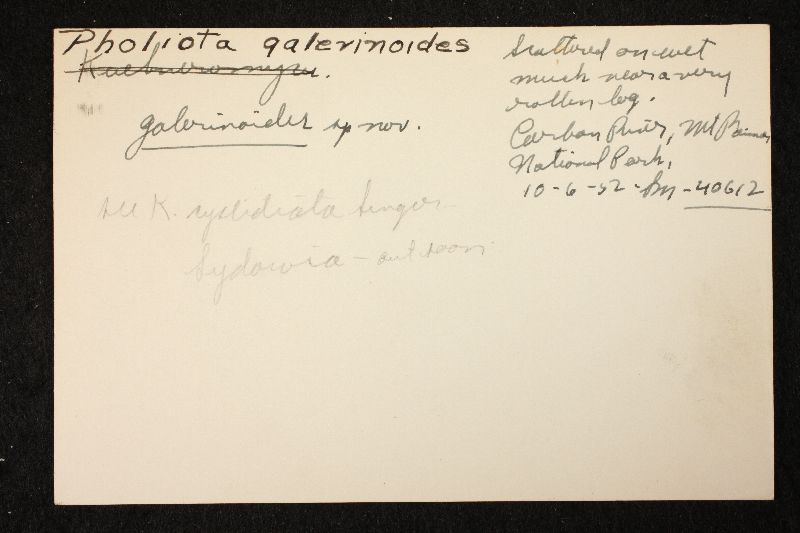 Pholiota galerinoides
Kuehneromyces.
galerinoides sp nov.
see K. cystidiata Singer
Sydowia - out soon
Scattered on wet
muck near a very
rotten log.
Carbon River, Mt Rainier
National Park,
10-6-52 - Sm - 40612